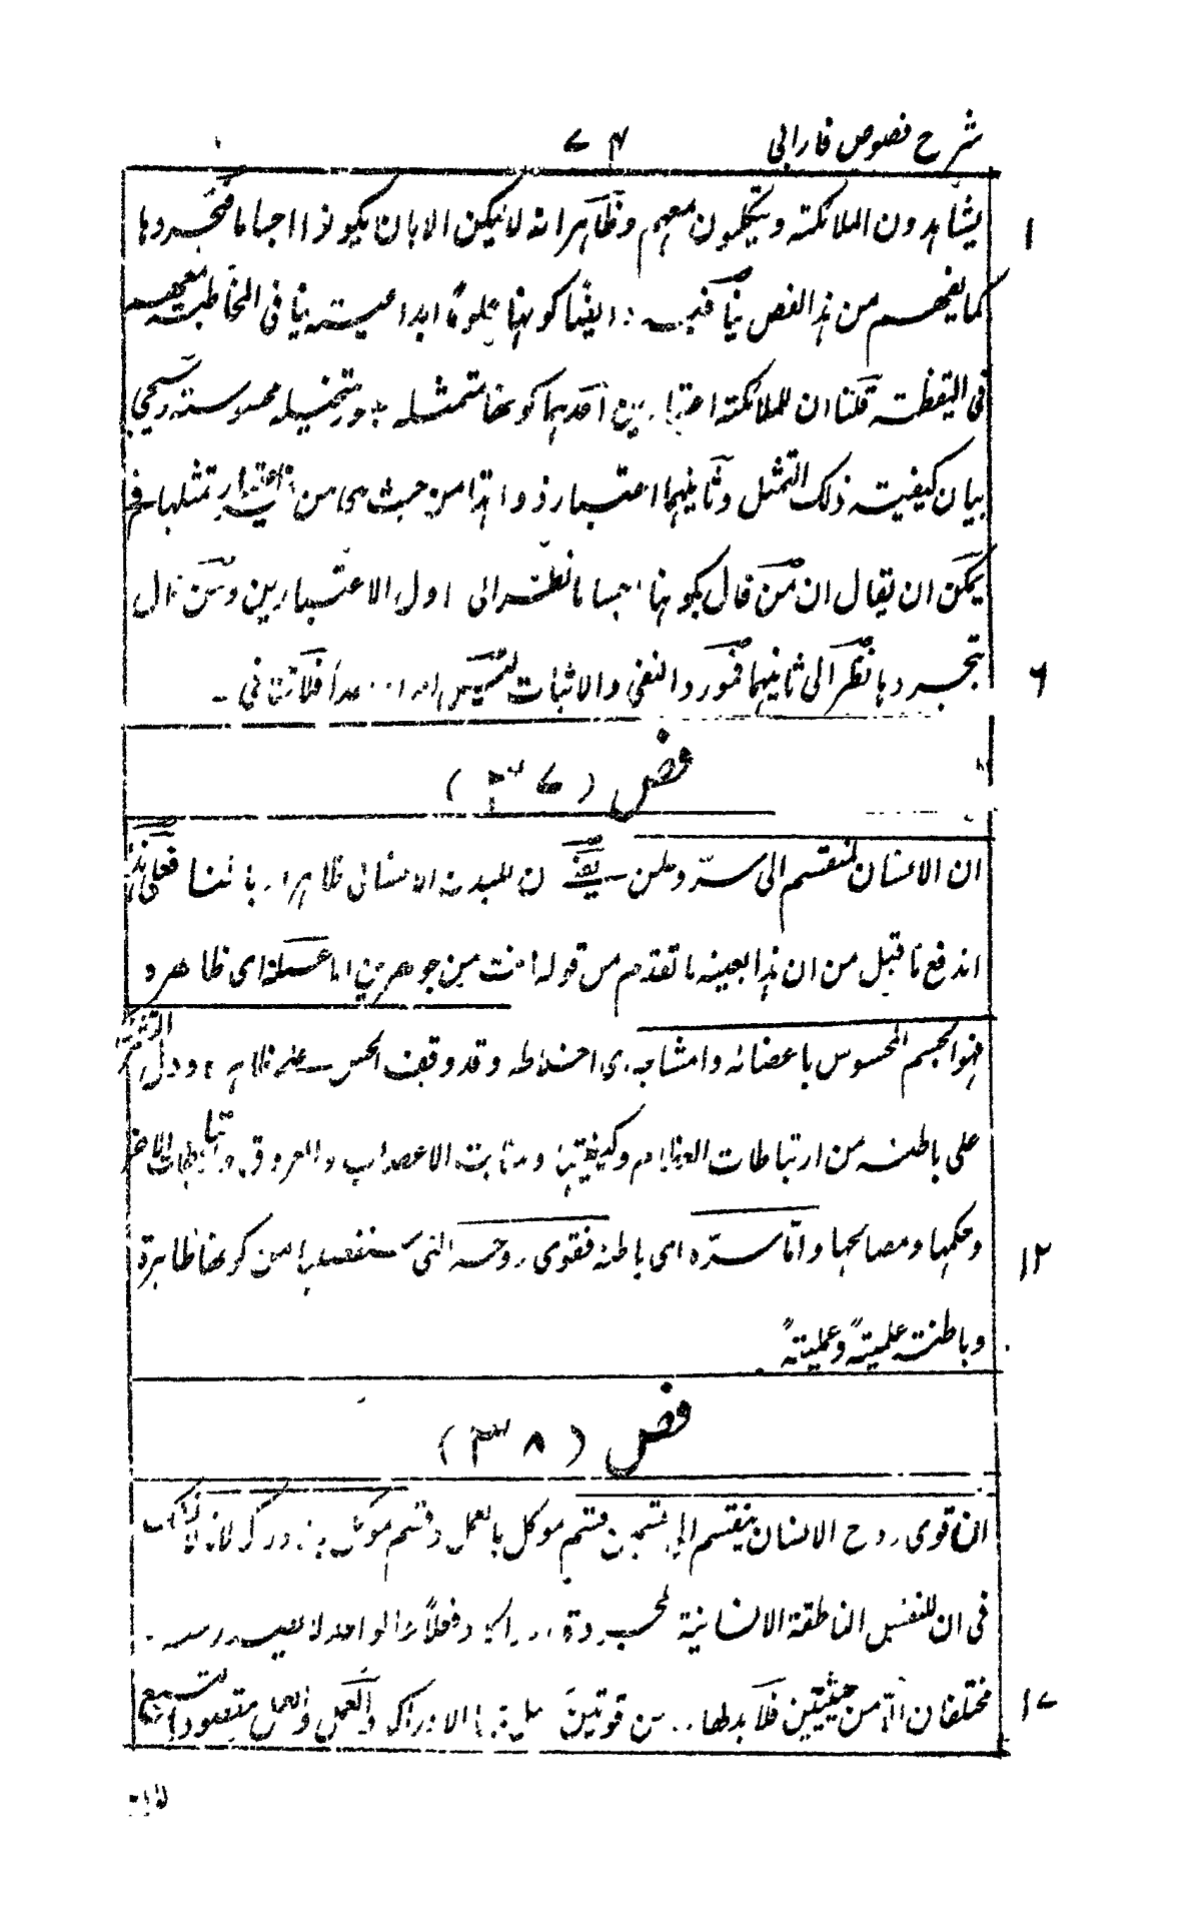 شرح فصوص فارابی ٧٤
يشاهدون الملائكة ويتكلمون معهم وظاهر انه لا يمكن الا بان يكونوا اجساما فتجردها ١
كما يفهم من هذا الفص ينافيه وايضا كونها علوما ابداعية ينافى المخاطبة معهم
فى اليقظة قلنا ان للملائكة اعتبارين احدهما كونها متمثلة متخيلة محسوسة وسيجئ
بيان كيفية ذلك التمثل وثانيهما اعتبار ذواتها من حيث هى من اعتبار تمثلها فح
يمكن ان يقال ان من قال بكونها اجساما نظر الى اول الاعتبارين ومن قال
بتجردها نظر الى ثانيهما فمورد النفى والاثبات ليس امرا واحدا فلا تنافى - ٦
فص (٣٧)
ان الانسان لمنقسم الى سرّ وعلن يعنى ان للبدن الانسانى ظاهرا وباطنا فعلى هذا
اندفع ما قيل من ان هذا بعينه ما تقدم من قوله انت من جوهرين اما علنه اى ظاهره
فهو الجسم المحسوس باعضائه وامشاجه اى اخلاطه وقد وقف الحس على ظاهره ودل التشريح
على باطنه من ارتباطات العظام وكيفيتها ومنابت الاعصاب والعروق
وحكمها ومصالحها وامّا سرّه اى باطنه فقوى روحه التى ستفصلها من كونها ظاهرة ١٢
وباطنة علميةً وعمليةً
فص (٣٨)
ان قوى روح الانسان ينقسم الى قسمين قسم موكل بالعمل وقسم موكل بالادراك لانه لا شك
فى ان للنفس الناطقة الانسانية المجردة ادراكا وفعلاً والواحد لا يصدر عنه
مختلفان الّا من حيثيتين فلا بد لها من قوتين الادراك والعمل والعمل
١٧